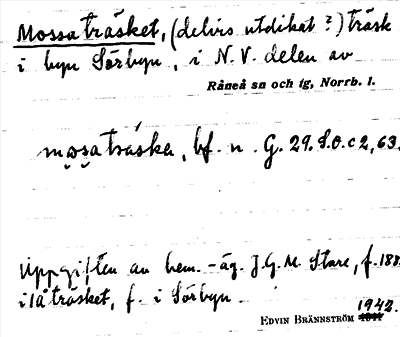 Mossaträsket, (delvis utdikat?) träsk
i byn Sörbyn, i N.V. delen av
Råneå sn och tg, Norrb. l.
mosaträska, bf. n. G. 29. S.O. c 2,63.
Uppgiften av hem.-äg. J.G.M. Stare, f. 188
i Låträsket, f. i Sörbyn.
1942.
EDVIN BRÄNNSTRÖM